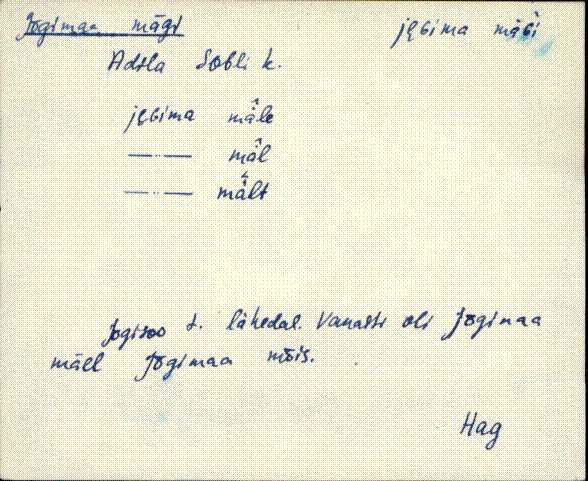 Jõgimaa mägi
je̮ɢima mäɢi
Adsla Sobli k.
je̮ɢima mä̂le
—··— mä̂l
—··— mä̂lt
Jõgisoo t. lähedal. Vanasti oli Jõgimaa
mäel Jõgimaa mõis.
Hag